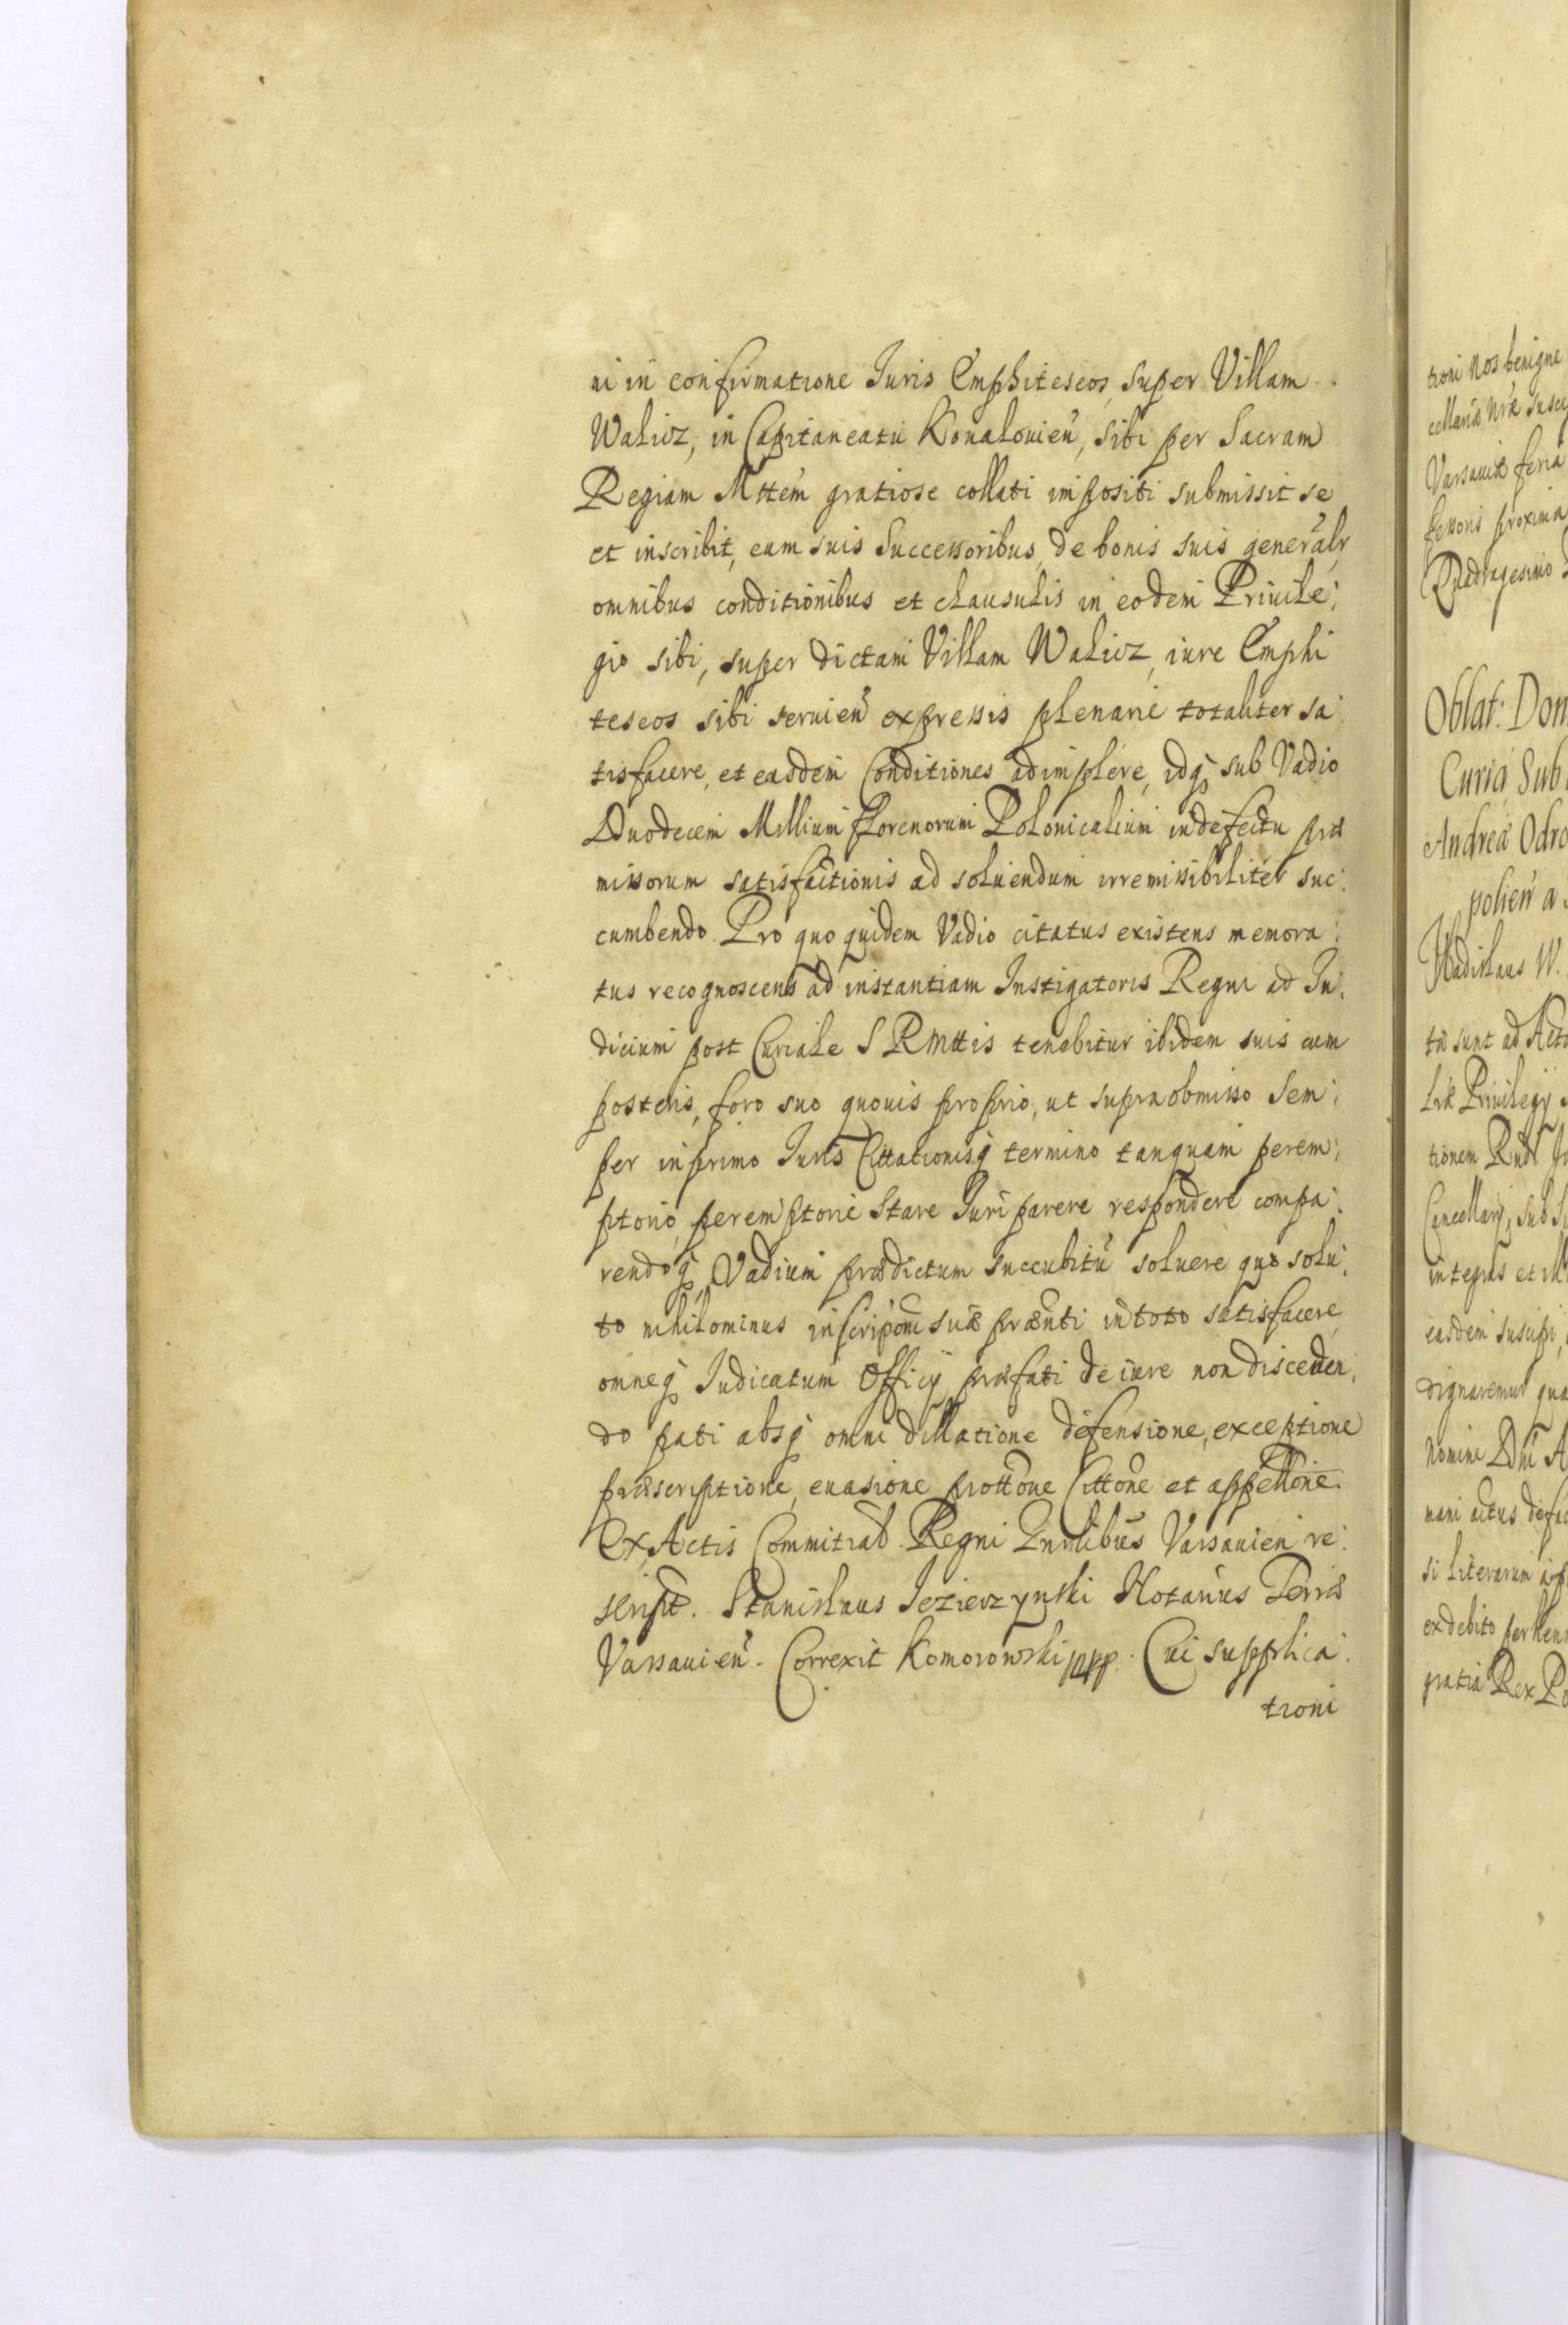 ni in confirmatione Juris Emphiteseos, super Villam
Walicz, in Capitaneatu Konalouien, sibi per Sacram
Regiam Mttem gratiose collati impositi submissit se
et inscribit, cum suis Successoribus, de bonis suis generalr
omnibus conditionibus et clausulis in eodem Priuile:
gio sibi, super dictam Villam Walicz, iure Emphi
teseos sibi seruien expressis plenarie totaliter sa
tisfacere, et easdem Conditiones adimplere, idq sub Vadio
Duodecem Millium florenorum Polonicalium in defectu præ
missorum satisfactionis ad soluendum irremissibiliter suc:
cumbendo. Pro quo quidem Vadio citatus existens memora:
tus recognoscens ad instantiam Instigatoris Regni ad Ju:
dicium post Curiale S R Mttis tenebitur ibidem suis cum
posteris, foro suo quouis proprio, ut supra obmisso Sem:
per in primo Juris Cittationisq termino tanquam perem:
ptorio, peremptorie Stare Juri parere respondere compa:
rendoq Vadium prædictum succubitu soluere quo solu:
to nihilominus inscripom suæ prænti in toto satisfacere
omneq Judicatum Officÿ præfati de iure non disceden:
do pati absq omni dillatione defensione, exceptione
præscriptione, euasione prottone Cittone et appellone.
Ex Actis Commitiab Regni Gnrlibus Varsauien re:
script. Stanislaus Jezierzynski Notarius Terris
Varsauien. Correxit Komorowski ppp. Cui supplica:
tioni
tioni Nos benigne
cellariæ Nræ susce
Varsauiæ feria
proxima
Quadragesimo
Oblat: Don
Curia Sub
Andrea Odro
polien a
Vladislaus W.
tu sunt ad Acta
Privilegÿ
tionem
Cancellarÿ, Sub S
integras et ill
easdem suscipi,
dignaremur qua
Nomine Dni A
mani actus defac
si literarum
ex debito
gratia Rex Po